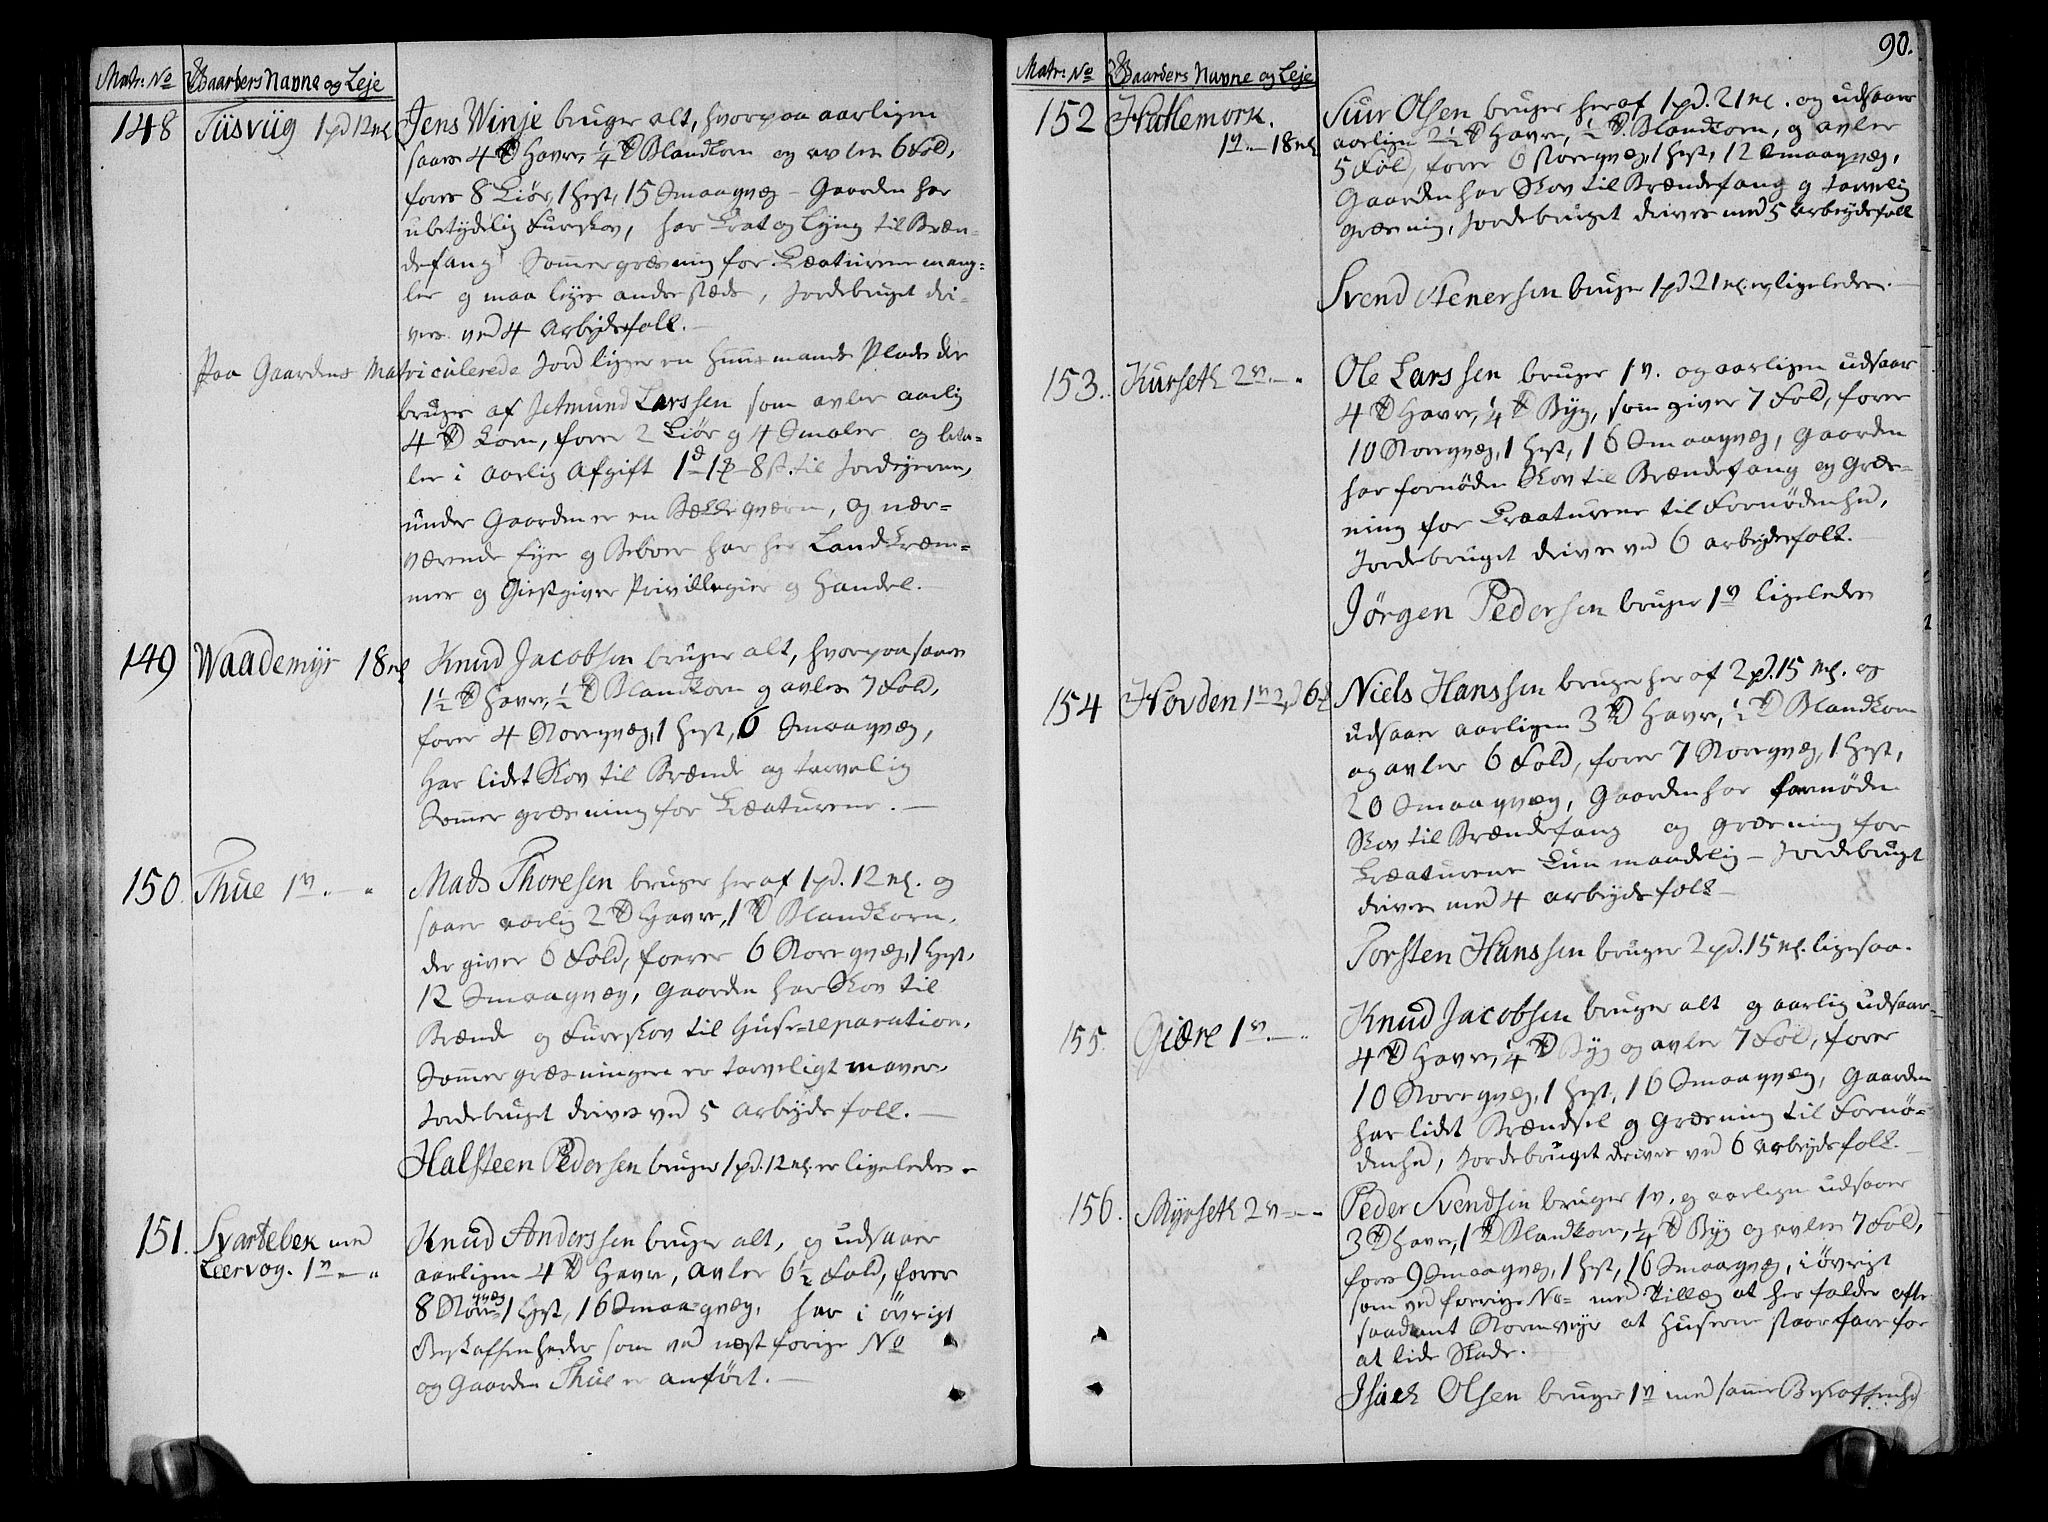 Matr: No Gaarders Navne og Leje
148 Tiisviig 1 pd 12 ml
Jens Winje bruger alt, hvorpaa aarligen
saaes 4 Td Havre, 1/4 Td Blandkorn og avles 6 Fold,
foder 8 Kiør, 1 Hest, 15 Smaaqvæg – Gaarden har
ubetydelig Fureskov, har Krat og Lyng til Bræn-
defang Sommergræsning for Kreaturene mang-
ler og maa leies andersteds, Jordebruget dri-
ves ved 4 Arbeydsfolk. –
Paa Gaardens Matriculerede Jord ligger en Huusmands Plads der
bruges af Jetmund Larssen som avler aarlig
4 Td Korn, foder 2 Kiør og 4 Smaler og beta-
ler i aarlig Afgift 1 d 1 – 8 s. til Jordejeren,
under Gaarden er en Bække qværn, og nær-
værende Ejer og Beboer har her Landkræm-
mer og Giestgiver Privillegier og Handel. –
149 Waademyr 18 ml
Knud Jacobsen bruger alt, hvorpaa saaes
1 1/2 Td Havre, 1/2 Td Blandkorn og avles 7 Fold,
foder 4 Storeqvæg, 1 Hest, 6 Smaaqvæg,
Har lidet Skov til Brænde og tarvelig
Sommer græsning for Kreaturene. –
150 Thue 1 v. – "
Mads Thoresen bruger her af 1 pd. 12 ml. og
saaer aarlig 2 Td Havre, 1 Td Blandkorn,
der giver 6 Fold, foerer 6 Storeqvæg, 1 Hest,
12 Smaaqvæg, Gaarden har Skov til
Brænde og Fureskov til Huse-reparation,
Sommer græsningen er tarveligt
Jordebruget drives ved 5 Arbeyds folk. –
Halsteen Pedersen bruger 1 pd. 12 ml er ligeledes.
151. Svartebek med
Leervog. 1 v – "
Knud Anderssen bruger alt, og udsaaer
aarligen 4 Td Havre, avler 6 1/2 Fold, foder
8 Store qvæg 1 Hest, 16 Smaa-qvæg, har i øvrigt
Beskaffenheder som ved næst forige No
og Gaarden Thue er anført. –
90.
Matr: No Gaarders Navne og Leje
152 Hatlemork.
1 v. – 18 ml
Siur Olsen bruger her af 1 pd. 21 ml. og udsaaer
aarligen 2 1/2 Td Havre, 1/2 Td Blandkorn, og avler
5 Fold, foder 6 Storeqvæg, 1 Hest, 12 Smaaqvæg,
Gaarden har Skov til Brændefang og tarvelig
græsning, Jordebruget drives med 5 Arbeydsfolk
Svend Stenersen bruger 1 pd 21 ml. ligeledes. –
153. Kurseth 2 v. – "
Ole Larssen bruger 1 v. og aarligen udsaar
4 Td Havre, 1/4 Td Byg, som giver 7 Fold, foder
10 Storeqvæg, 1 Hest, 16 Smaaqvæg, Gaarden
har fornøden Skov til Brændefang og Græs-
ning for Kreaturene til Fornødenhed,
Jordebruget drives ved 6 arbeydsfolk. –
Jørgen Pedersen bruger 1 v ligeledes
154 Hovden 1 v 2 pd 6
Niels Hanssen bruger her af 2 pd. 15 ml. og
udsaaer aarligen 3 Td Havre, 1/2 Td Blandkorn
og avler 6 Fold, foder 7 Storeqvæg, 1 Hest,
20 Smaaqvæg, Gaarden har fornøden
Skov til Brændefang og græsning for
Kreaturene kun maadelig – Jordebruget
drives med 4 arbeydsfolk –
Torsten Hanssen bruger 2 pd. 15 ml. ligesaa.
155. Giære 1 v. – "
Knud Jacobsen bruger alt og aarlig udsaar
4 Td Havre, 1/4 Td Byg og avler 7 Fold, foder
10 Storeqvæg, 1 Hest, 16 Smaaqvæg, Gaarden
har lidet Brændsel og Græsning til Fornø-
denhed, Jordebruget drives ved 6 arbeydsfolk. –
156. Myrseth 2 v – –
Peder Svendsen bruger 1 v. og aarligen udsaaer
3 Td Havre, 1 Td Blandkorn, 1/4 Td Byg og avler 7 Fold,
foder 9 Smaaqvæg, 1 Hest, 16 Smaaqvæg, i øvrigt
som ved forrige No – med Tillæg at her falder ofte
saadant Stormveyr at Husene staar fare for
at lide Skade.
Isach Olsen bruger 1 v med samme Beskaffenhed